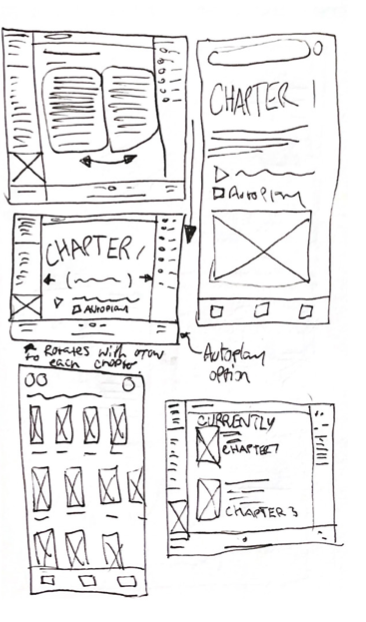 CHAPTER 1
AutoPlay
CHAPTER 1
AUTOPLAY
Rotates with
to each chapter
Autoplay
option
CURRENTLY
CHAPTER 7
CHAPTER 3